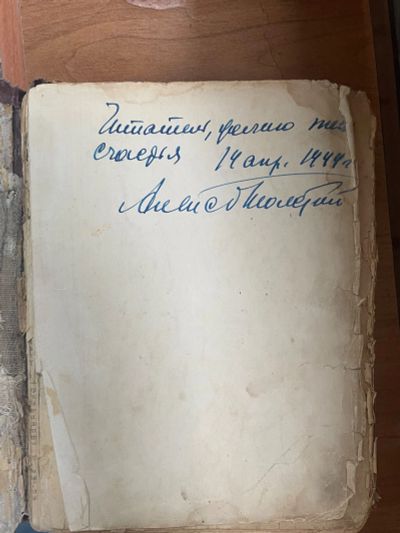 Читатель, желаю тебе
счастья 14 апр. 1944 г
Алексей Толстой